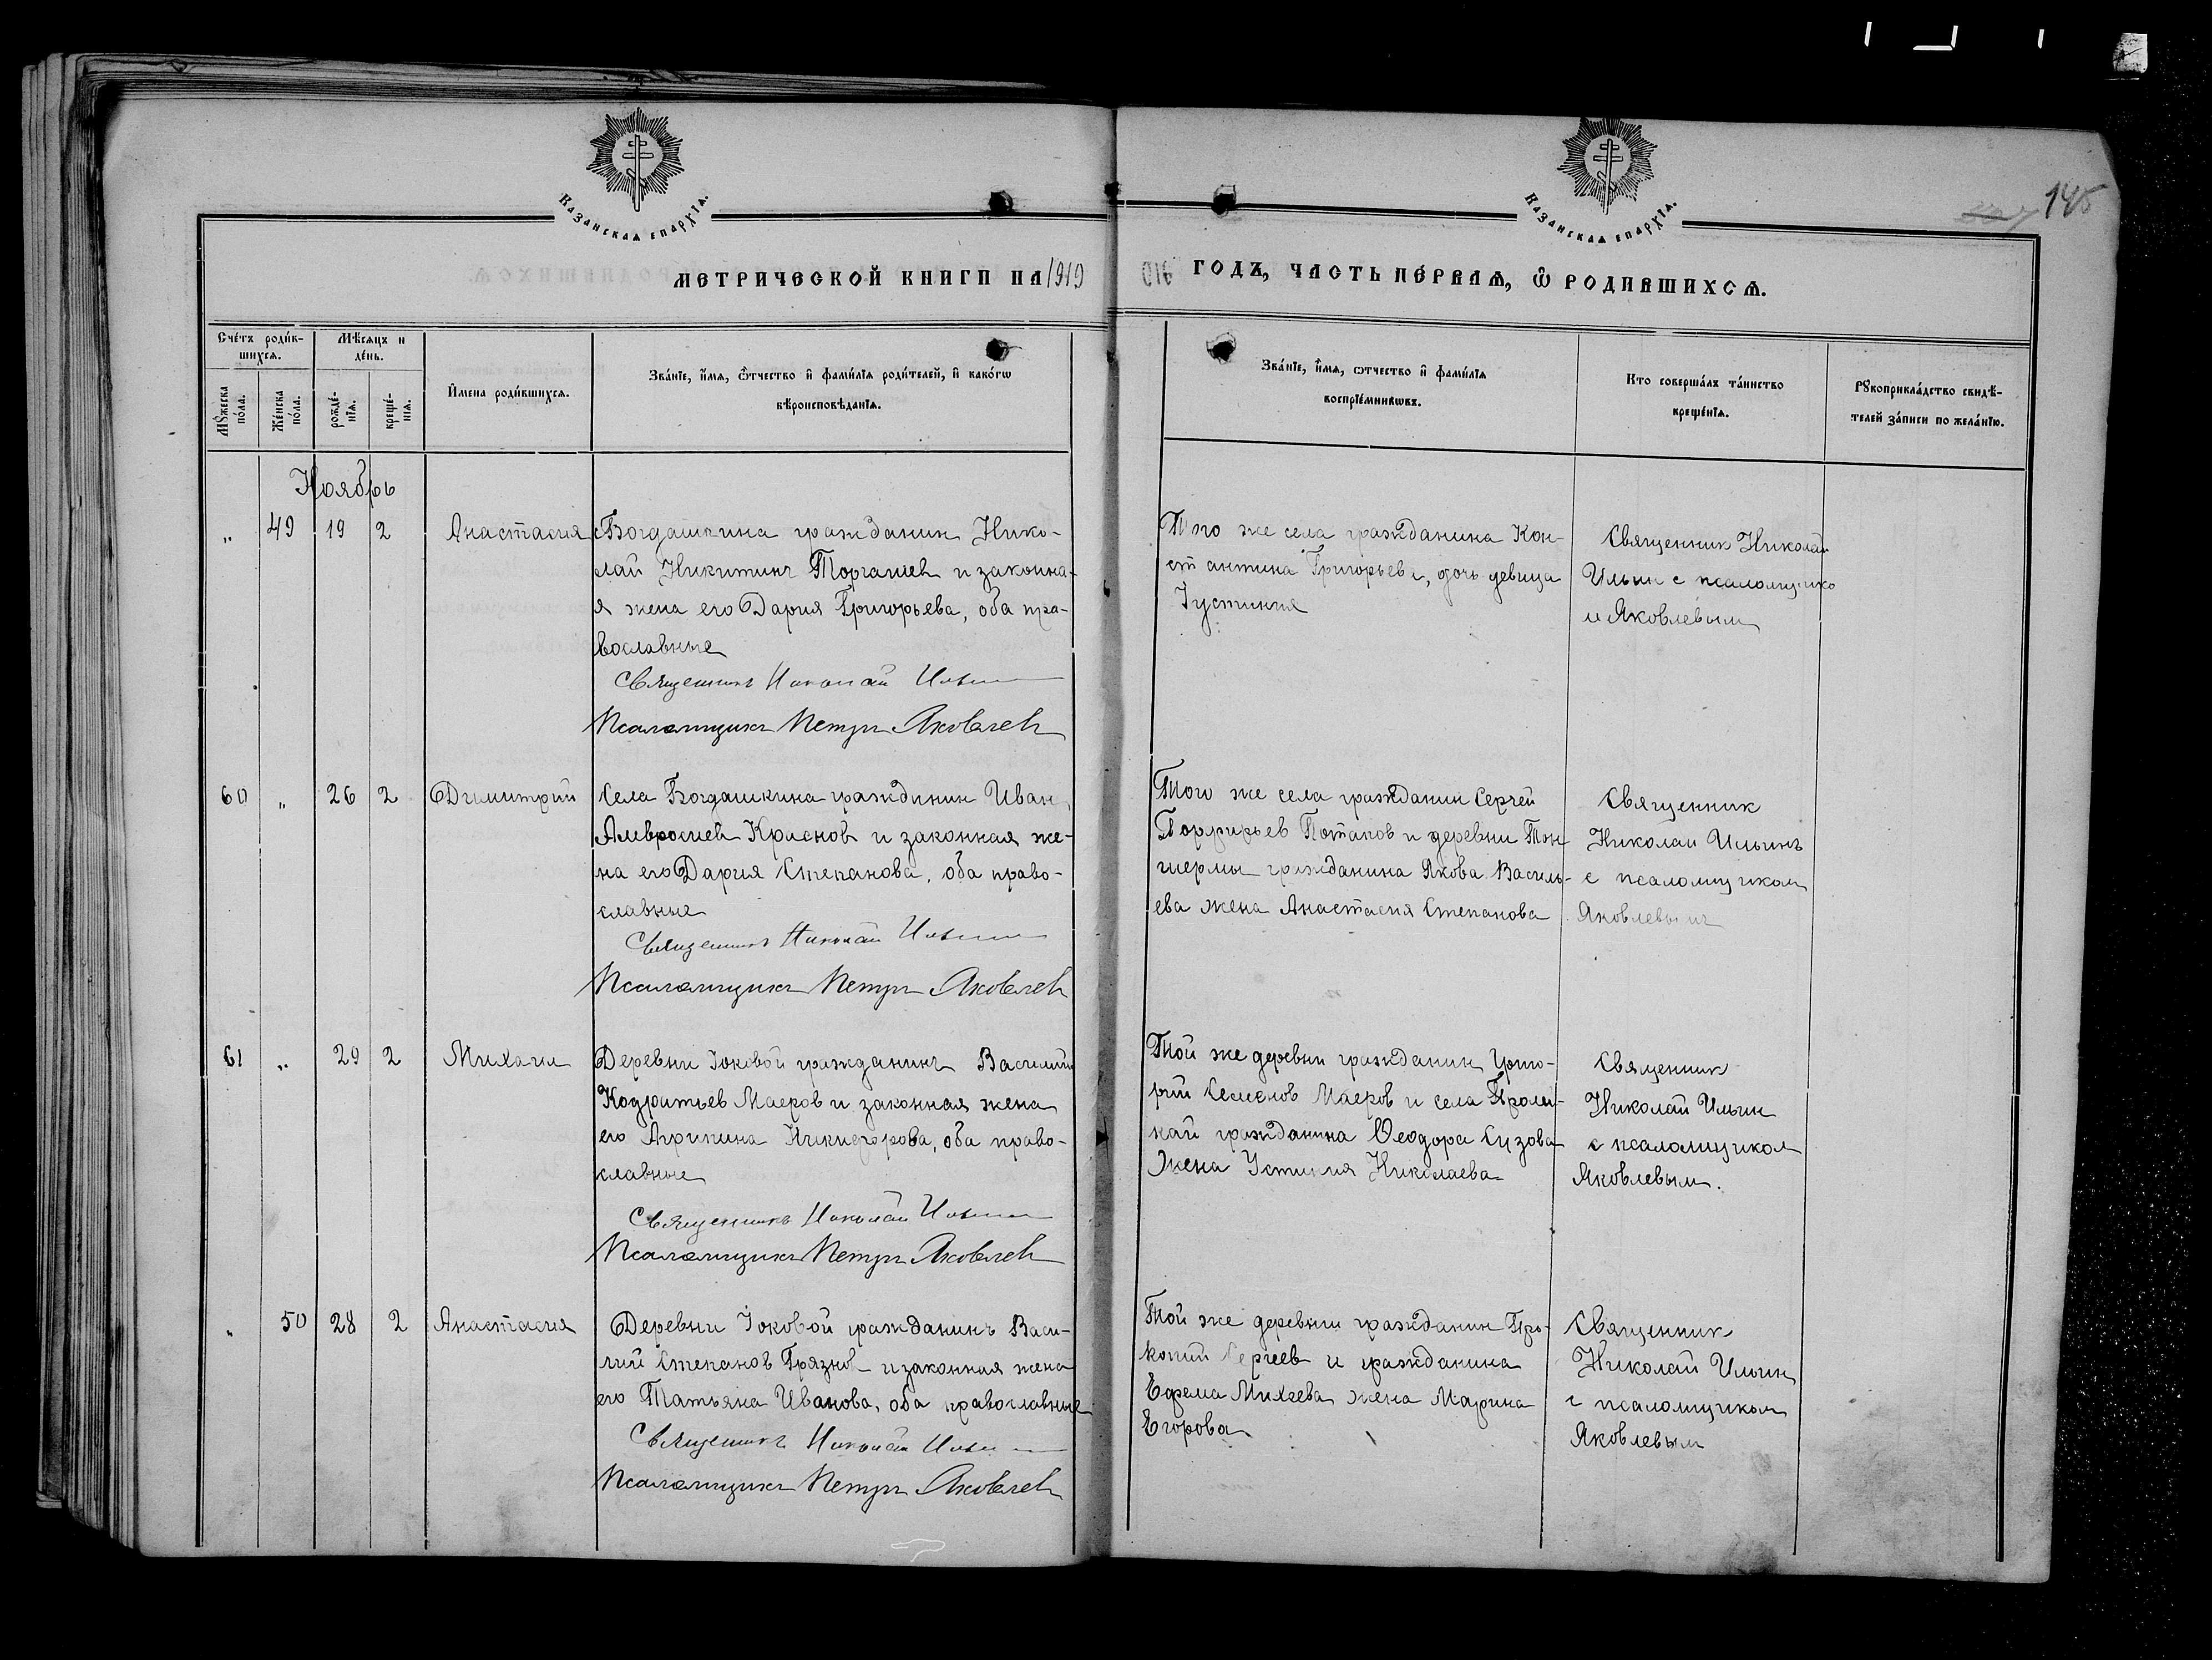 Казанская епархїя.
Казанская епархїя.
145
метрической книги на 1919
годъ, часть первая, ѡ родившихся.
Счéтъ роди́в-
шихся.
Мѣсяцъ и
де́нь.
Мꙋжеска
по́ла.
Же́нска
по́ла.
рожде́-
нїя.
креще́-
нїя.
И҆мена роди́вшихся.
Зва́нїе, и҆́мя, ѻ҆́тчество и҆ фами́лїя роди́телей, и҆ како́гѡ
вѣроисповѣ́данїя.
Зва́нїе, и҆́мя, ѻтчество и҆ фами́лїя
воспрїе́мникѡвъ.
Кто соверша́лъ та́инство
креще́нїя.
Рꙋкоприкла́дство свидѣ́-
телей за́писи по жела́нїю.
Ноябрь
„ 49 19 2 Анастасия
с Богдашкина гражданин Нико-
лай Никитинъ Торгашев и законна-
я жена его Дария Григорьева, оба пра-
вославные
Священникъ Николай Ильин
Псаломщикъ Петръ Яковлев
Того же села гражданина Кон-
стантина Григорьева, дочь девица
Iустиния
Священник Николай
Ильин с псаломщико
м Яковлевым
60 „ 26 2 Димитрий
Села Богдашкина гражданин Иван
Амвросиев Краснов и законная же-
на его Дария Степанова, оба право-
славные
Священникъ Николай Ильин
Псаломщикъ Петръ Яковлев
Того же села гражданин Сергей
Порфирьев Потапов и деревни Тон-
шермы гражданина Якова Василь-
ева жена Анастасия Степанова
Священник
Николай Ильинъ
с псаломщиком
Яковлевымъ
61 „ 29 2 Михаил
Деревни Iоковой гражданинъ Василий
Кодратьев Маеров и законная жена
его Агрипина Никифорова, оба право-
славные
Священникъ Николай Ильин
Псаломщикъ Петръ Яковлев
Той же деревни гражданин Григо-
рий Семенов Маеров и села
гражданина Ѳеодора Сузова
жена Устиния Николаева
Священник
Николай Ильин
с псаломщиком
Яковлевым.
„ 50 28 2 Анастасия
Деревни Iоковой гражданинъ Васи-
лий Степанов Грязнов и законная жена
его Татьяна Иванова, оба православные
Священникъ Николай Ильин
Псаломщикъ Петръ Яковлев
Той же деревни гражданин Про-
копий Сергеев и гражданина
Ефема Михеева жена Марина
Егорова
Священник
Николай Ильин
с псаломщиком
Яковлевым